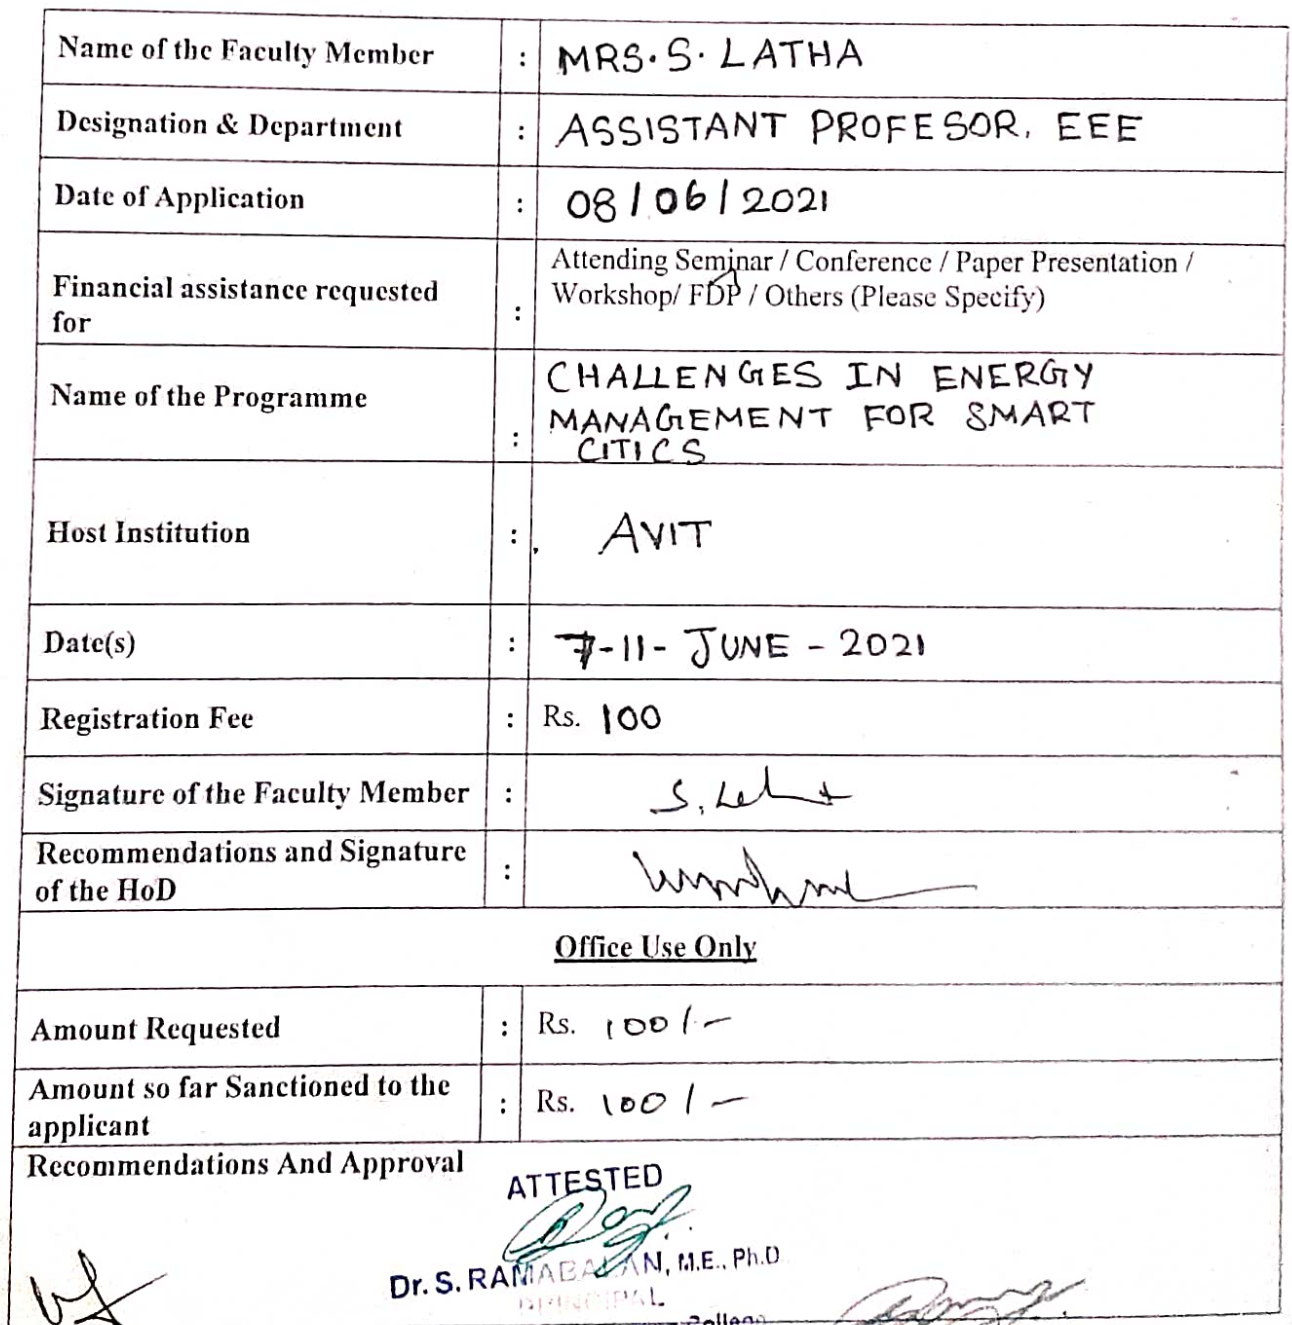 Name of the Faculty Member : MRS. S. LATHA
Designation & Department : ASSISTANT PROFESOR, EEE
Date of Application : 08/06/2021
Financial assistance requested for : Attending Seminar / Conference / Paper Presentation /
Workshop/ FDP / Others (Please Specify)
Name of the Programme : CHALLENGES IN ENERGY
MANAGEMENT FOR SMART
CITICS
Host Institution : AVIT
Date(s) : 7-11-JUNE-2021
Registration Fee : Rs. 100
Signature of the Faculty Member : S. Latha
Recommendations and Signature
of the HoD :
Office Use Only
Amount Requested : Rs. 100/-
Amount so far Sanctioned to the
applicant : Rs. 100/-
Recommendations And Approval
ATTESTED
Dr. S. RAMABALAN, M.E., Ph.D
PRINCIPAL